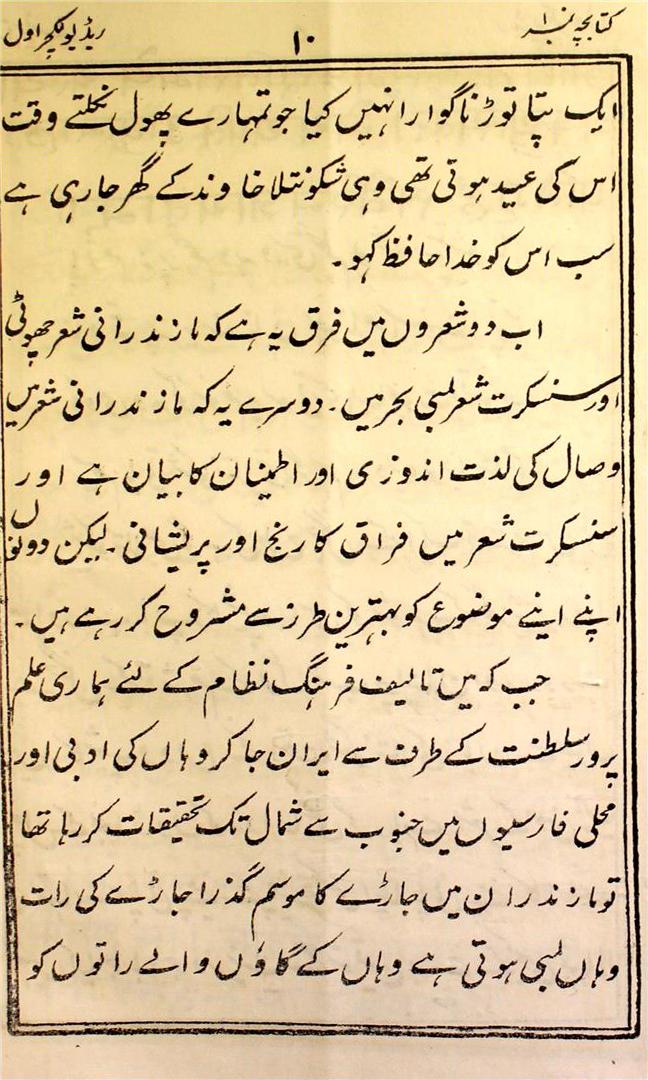 کتابچہ نمبر ۱
۱۰
ریڈیو لکچر اول
ایک پتا توڑنا گوارا نہیں کیا جو تمہارے پھول نکلتے وقت
اس کی عید ہوتی تھی وہی شکونتلا خاوند کے گھر جارہی ہے
سب اس کو خدا حافظ کہو۔
اب دو شعروں میں فرق یہ ہے کہ مازندرانی شعر چھوٹی
اور سنسکرت شعر لمبی بحر میں۔ دوسرے یہ کہ مازندرانی شعر میں
وصال کی لذت اندوزی اور اطمینان کا بیان ہے اور
سنسکرت شعر میں فراق کا رنج اور پریشانی۔ لیکن دونوں
اپنے اپنے موضوع کو بہترین طرز سے مشروح کر رہے ہیں۔
جب کہ میں تالیف فرہنگ نظام کے لئے ہماری علم
پرور سلطنت کے طرف سے ایران جا کر وہاں کی ادبی اور
محلی فارسیوں میں جنوب سے شمال تک تحقیقات کر رہا تھا
تو مازندران میں جاڑے کا موسم گذرا جاڑے کی رات
وہاں لمبی ہوتی ہے وہاں کے گاؤں والے راتوں کو